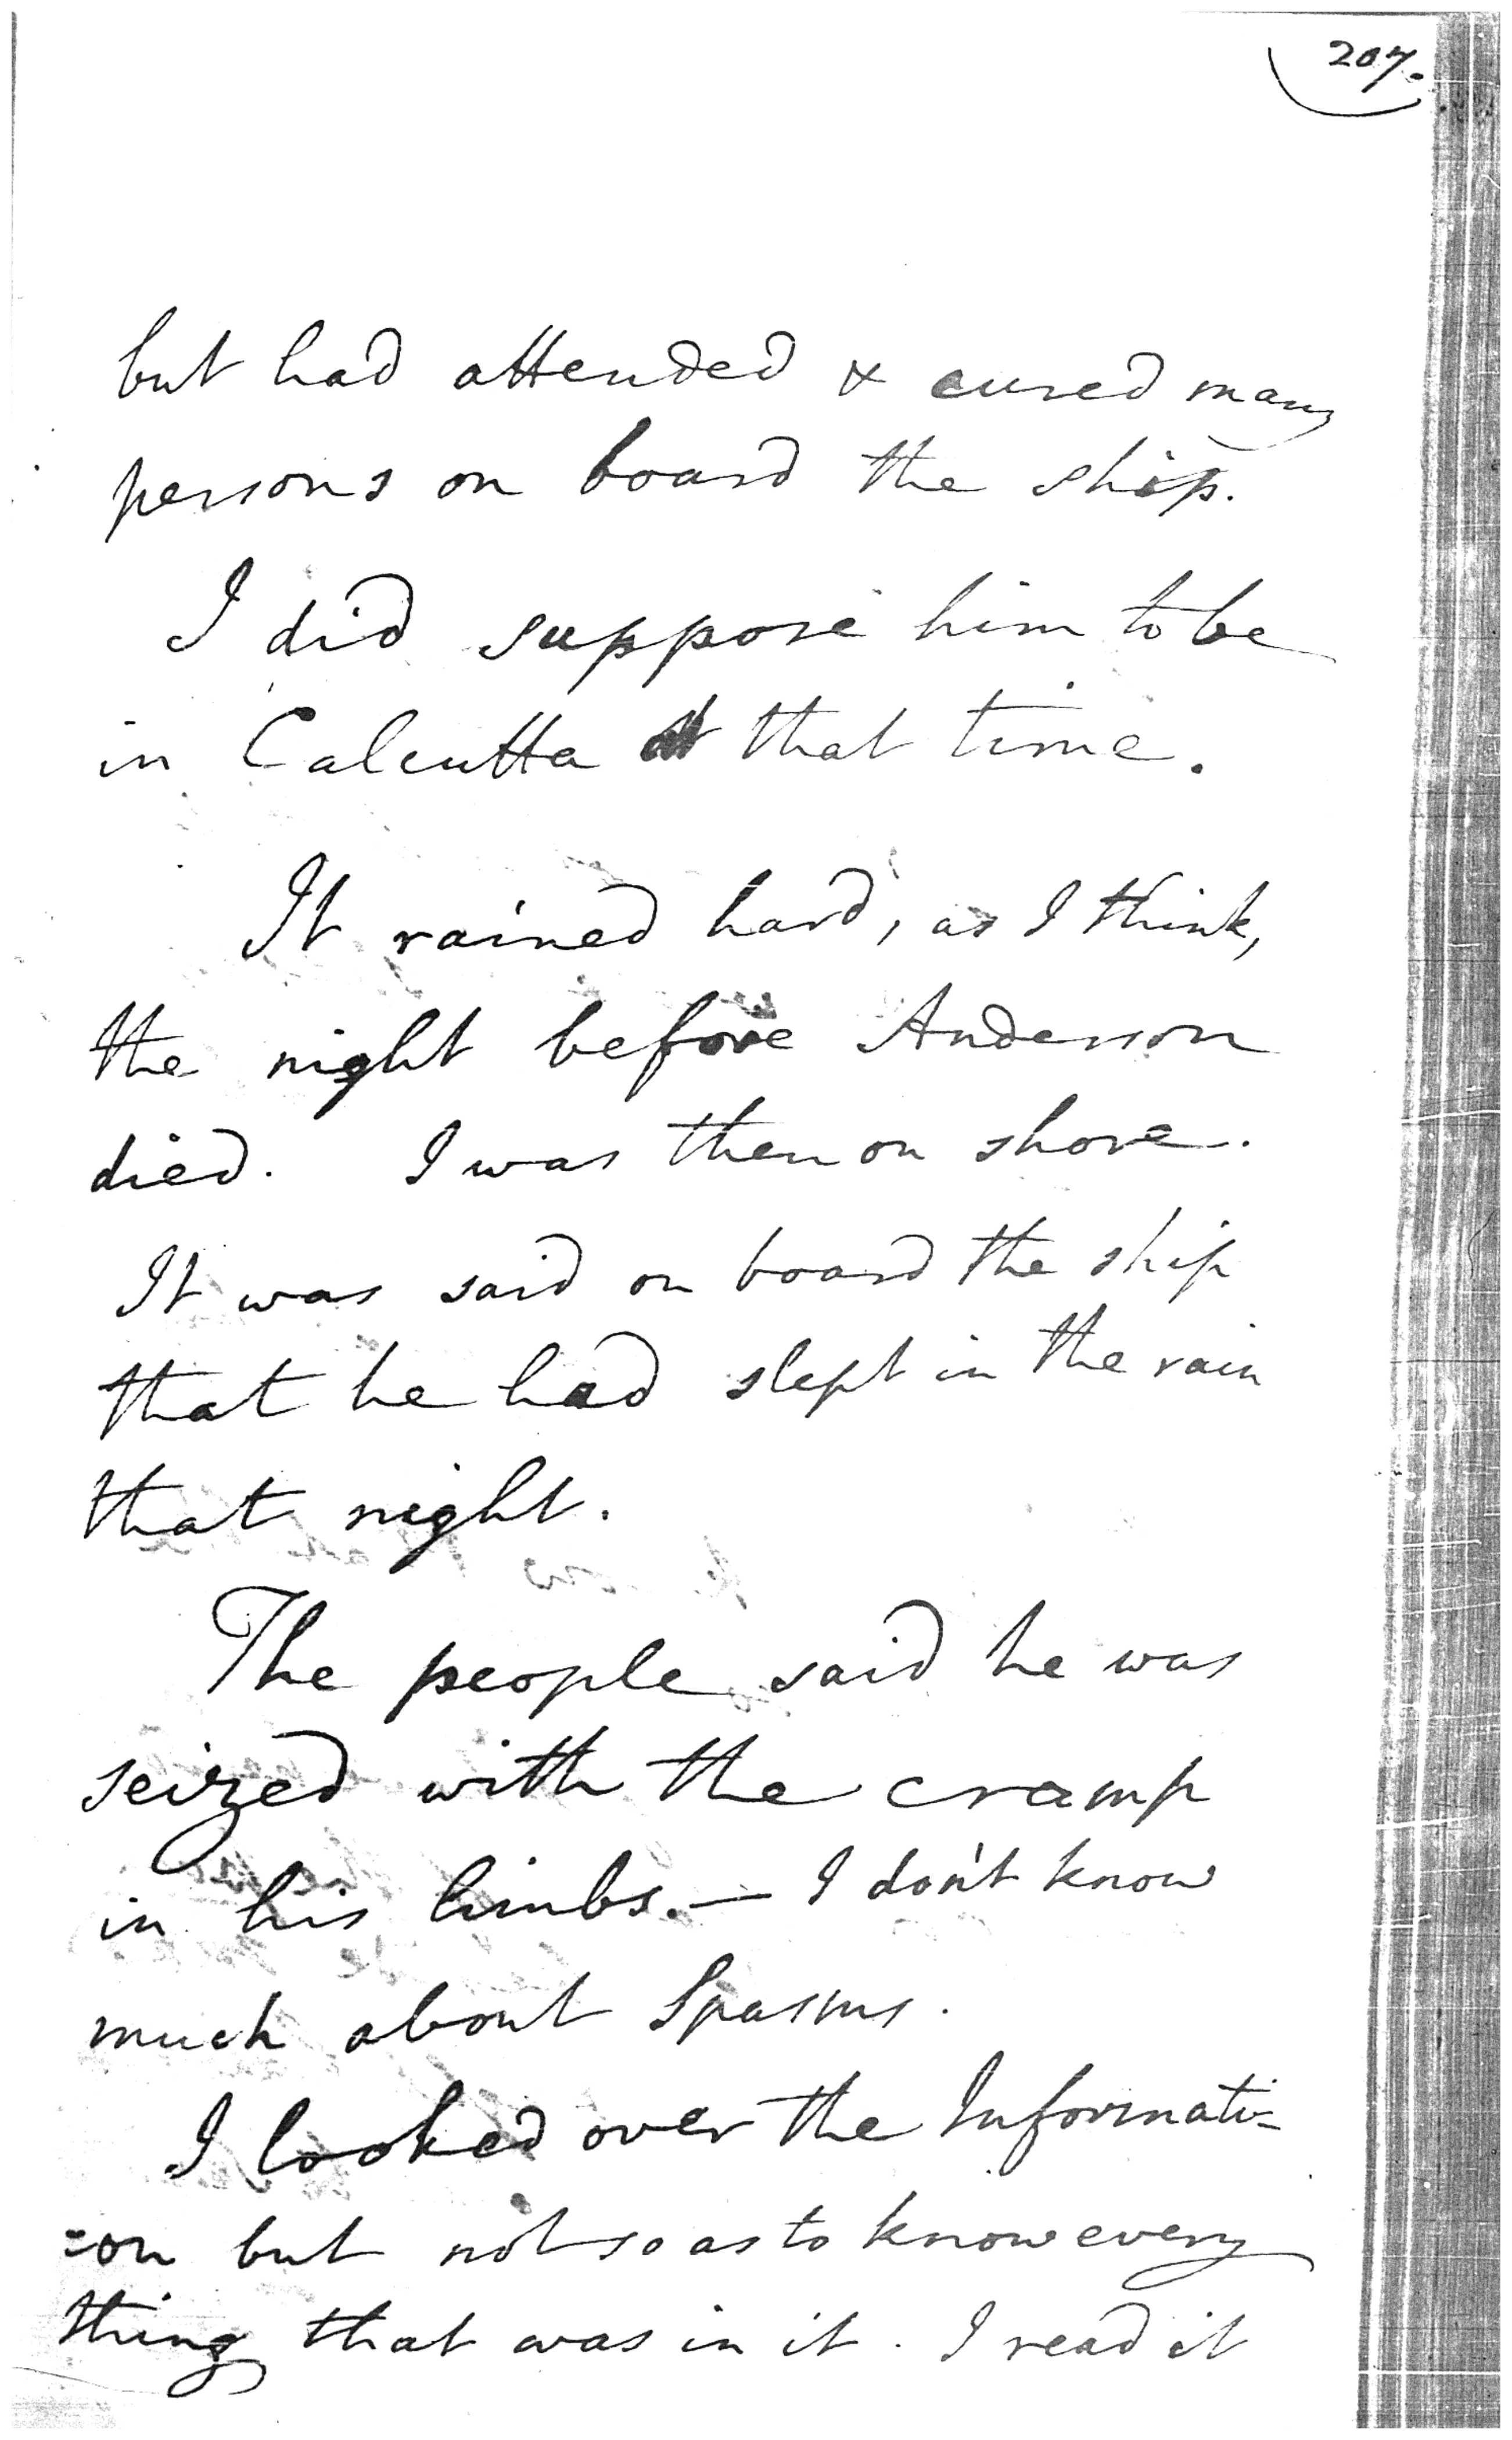 207.
but had attended & cured many
persons on board the ship.
I did suppose him to be
in Calcutta at that time.
It rained hard, as I think,
the night before Anderson
died. I was then on shore.
It was said on board the ship
that he had slept in the rain
that night.
The people said he was
seized with the cramp
in his limbs. — I don't know
much about Spasms.
I looked over the Informati=
=on but not so as to know every
thing that was in it. I read it